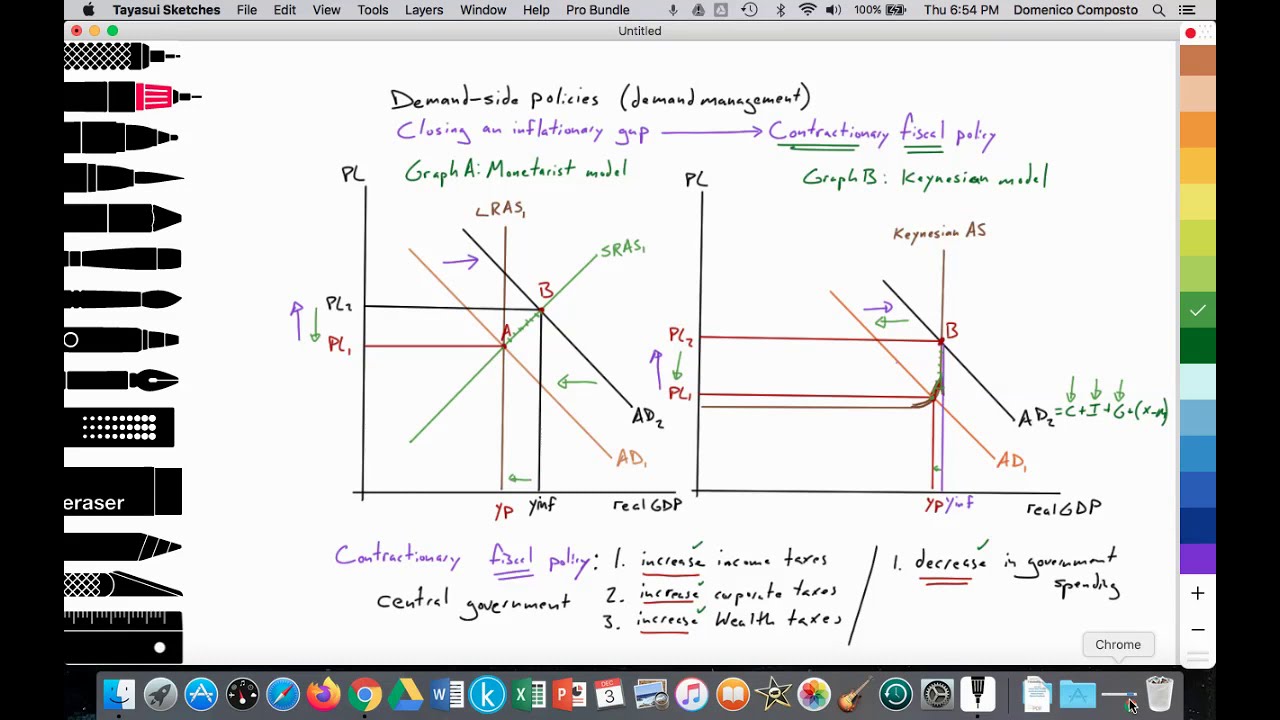 Tayasui Sketches File Edit View Tools Layers Window Help Pro Bundle 100% Thu 6:54 PM Domenico Composto
Untitled
Demand-side policies (demand management)
Closing an inflationary gap → Contractionary fiscal policy
Graph A: Monetarist model
Graph B: Keynesian model
PL
LRAS1
SRAS1
B
A
PL2
PL1
AD2
AD1
yp yinf real GDP
PL
Keynesian AS
B
PL2
PL1
AD2 = C+I+G+(x-m)
AD1
yp yinf real GDP
Contractionary fiscal policy: 1. increase income taxes
central government
2. increase corporate taxes
3. increase wealth taxes
1. decrease in government
spending
eraser
Chrome
DEC
3